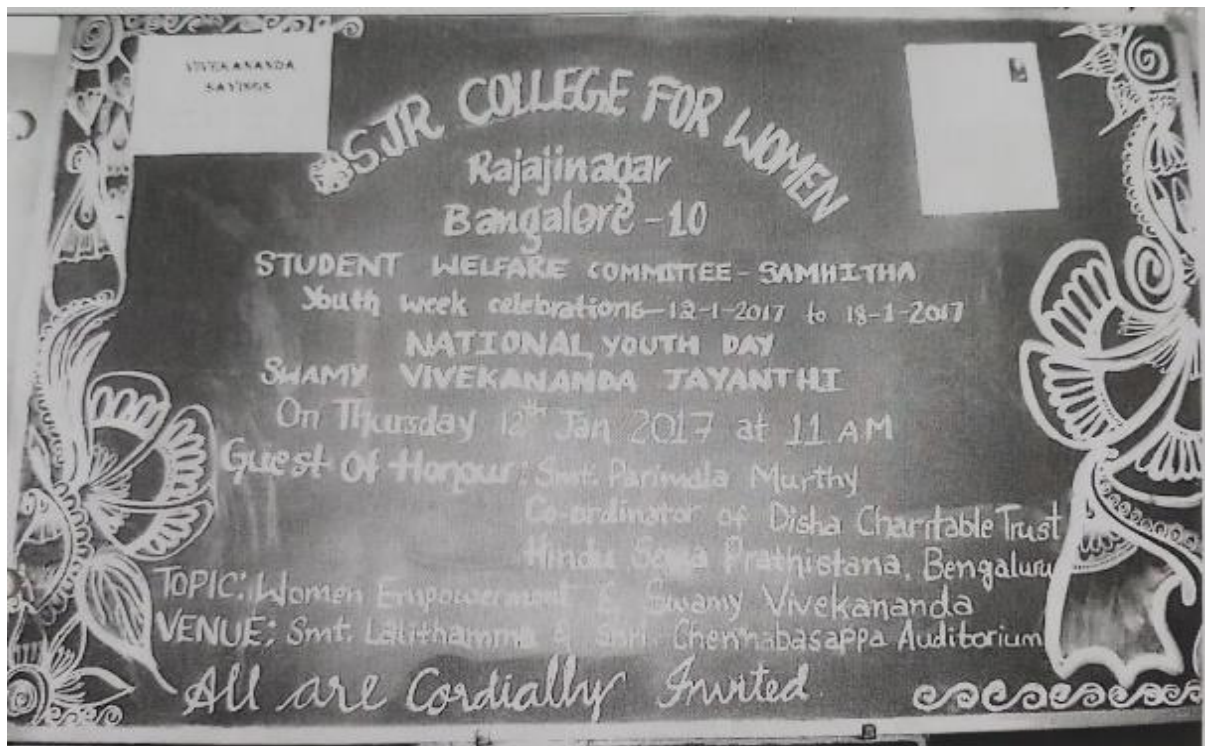 VIVEKANANDA
SAYINGS
SJR COLLEGE FOR WOMEN
Rajajinagar
Bangalore - 10
STUDENT WELFARE COMMITTEE - SAMHITHA
Youth week celebrations - 12-1-2017 to 18-1-2017
NATIONAL YOUTH DAY
SWAMY VIVEKANANDA JAYANTHI
On Thursday 12th Jan 2017 at 11 AM
Guest Of Honour: Smt. Parimala Murthy
Co-ordinator of Disha Charitable Trust
Hindu Seva Prathistana, Bengaluru
TOPIC: Women Empowerment & Swamy Vivekananda
VENUE: Smt. Lalithamma & Shri. Chennabasappa Auditorium
All are Cordially Invited